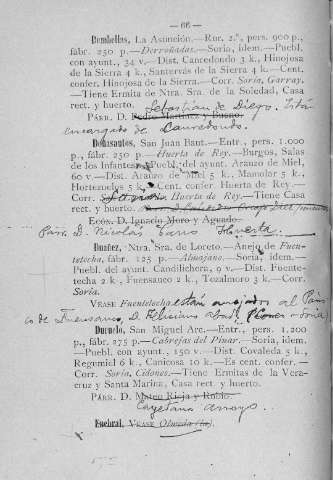 — 66 —
Dombellas, La Asunción.— Rur. 2.ª, pers. 900 p.,
fábr. 250 p.—Derroñadas.—Soria, idem.—Puebl.
con ayunt., 34 v.—Dist. Canredondo 3 k., Hinojosa
de la Sierra 4 k., Santervás de la Sierra 4 k.—Cent.
confer. Hinojosa de la Sierra.—Corr. Soria, Garray.
—Tiene Ermita de Ntra. Sra. de la Soledad, Casa
rect. y huerto. Sebastián de Diego. Está
PÁRR. D. Pedro Martínez y Bueno.
encargado de Canredondo.
Doñasantos, San Juan Baut.—Entr., pers. 1.000
p., fábr. 250 p.—Huerta de Rey.—Burgos, Salas
de los Infantes.—Puebl. del ayunt. Arauzo de Miel,
60 v.—Dist. Arauzo de Miel 5 k., Mamolar 5 k.,
Hortezuelos 5 k.—Cent. confer. Huerta de Rey.—
Corr. Huerta de Rey.—Tiene Casa
rect. y huerto.
ECÓN. D. Ignacio Moro y Aguado.
Párr. D. Nicolás Huerta.
Duañez, Ntra. Sra. de Loreto.—Anejo de Fuen-
tetecha, fábr. 125 p.—Almajano.—Soria, idem.—
Puebl. del ayunt. Candilichera, 9 v.—Dist. Fuente-
techa 2 k., Fuensauco 2 k., Tozalmoro 3 k.—Corr.
Soria.
VÉASE Fuentetecha están anejados al Párro
co de Fuensauco, D. Feliciano
Duruelo, San Miguel Arc.—Entr., pers. 1.200
p., fábr. 275 p.—Cabrejas del Pinar.—Soria, idem.
—Puebl. con ayunt., 150 v.—Dist. Covaleda 5 k.,
Regumiel 6 k., Canicosa 10 k.—Es cent. confer.—
Corr. Soria, Cidones.—Tiene Ermitas de la Vera-
cruz y Santa Marina, Casa rect. y huerto.
PÁRR. D. Mateo Rioja y Rubio.
Cayetano Arroyo.
Escbral, VÉASE Olmeda (la).